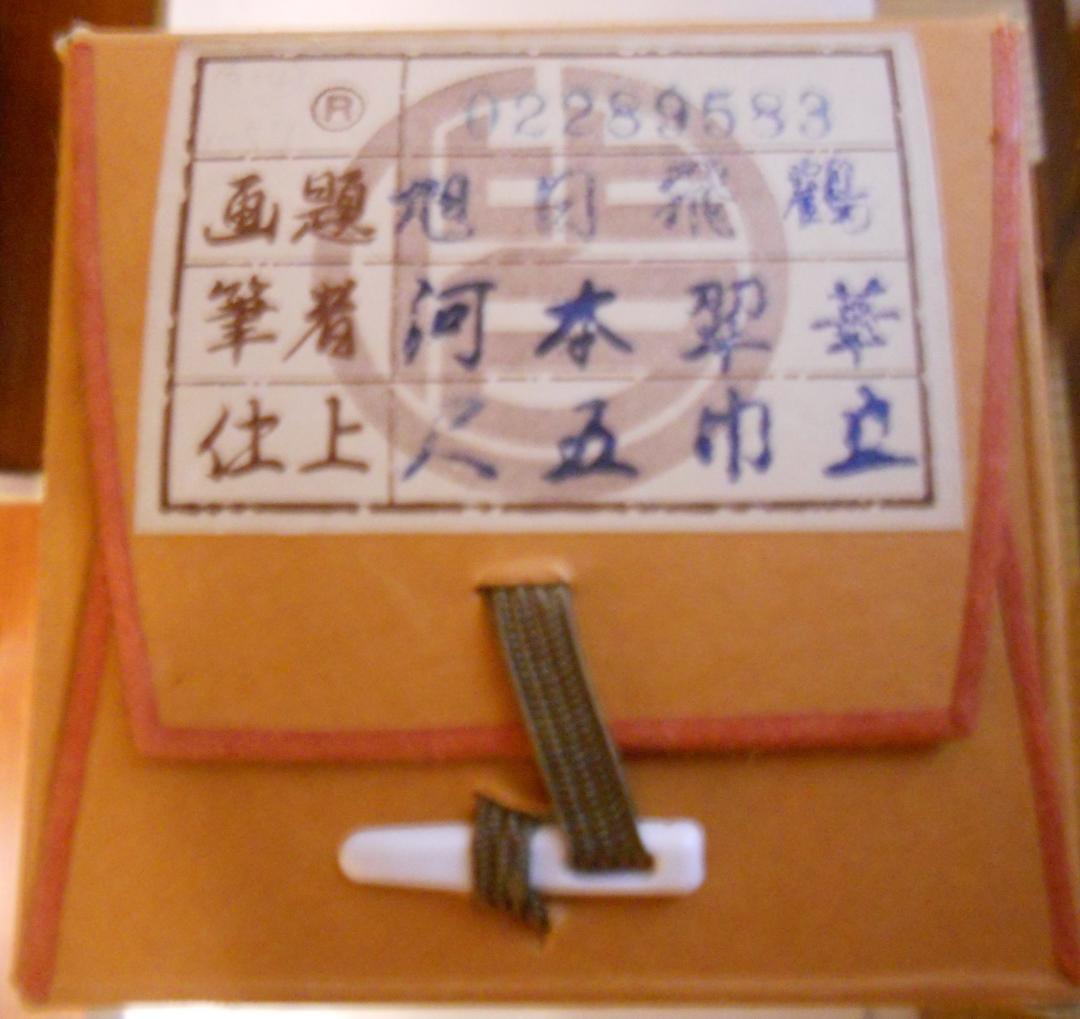 Ⓡ 02289583
画題 旭日飛鶴
筆者 河本翆華
仕上 尺五巾立